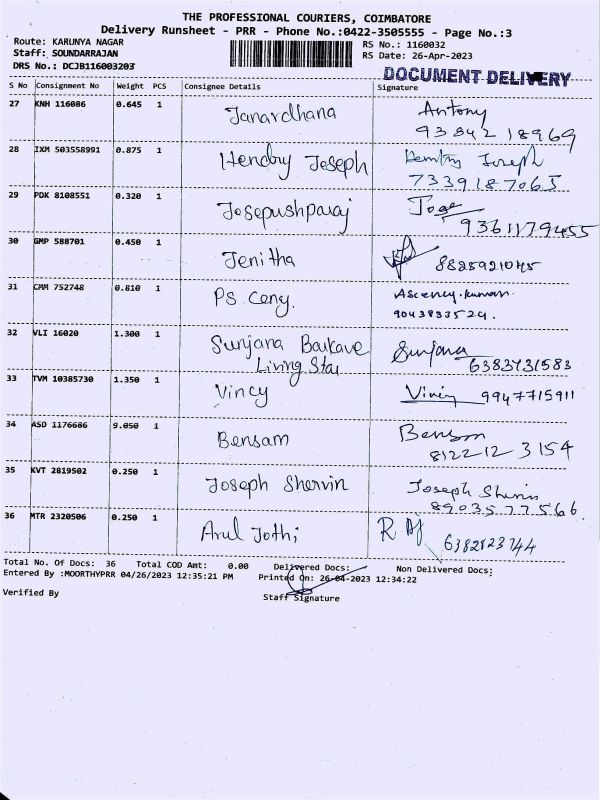 THE PROFESSIONAL COURIERS, COIMBATORE
Delivery Runsheet - PRR - Phone No.:0422-3505555 - Page No.:3
Route: KARUNYA NAGAR RS No.: 1160032
Staff: SOUNDARRAJAN RS Date: 26-Apr-2023
DRS No.: DCJB116003203
DOCUMENT DELIVERY
S No Consignment No Weight PCS Consignee Details Signature
27 KNH 116086 0.645 1 Janardhana Antony
9384218969
28 IXM 503558991 0.875 1 Hendry Joseph Hendry Joseph
7339187065
29 PDK 8108551 0.320 1 Josepushparaj Jose
9361179455
30 GMP 588701 0.450 1 Jenitha 8825921045
31 CMM 752748 0.810 1 Ps Ceny. Ascency.kumar.
9043833524.
32 VLI 16020 1.300 1 Sunjana Barkave Sunjana
Living Star 6383731583
33 TVM 10385730 1.350 1 Vincy Vincy 9947715911
34 ASD 1176686 9.050 1 Bensam Bensam
8122123154
35 KVT 2819502 0.250 1 Joseph Shervin Joseph Shervin
8903577566
36 MTR 2320506 0.250 1 Arul Jothi R
6382823744
Total No. Of Docs: 36 Total COD Amt: 0.00 Delivered Docs: Non Delivered Docs:
Entered By :MOORTHYPRR 04/26/2023 12:35:21 PM Printed On: 26-04-2023 12:34:22
Verified By Staff Signature